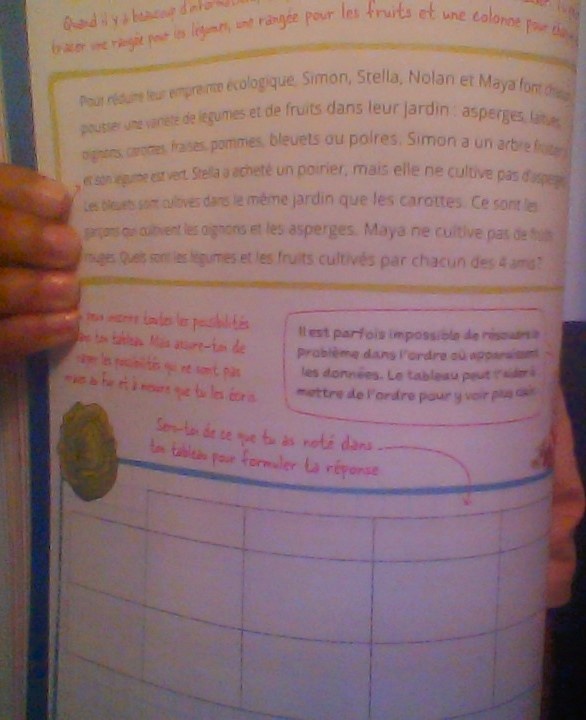 Quand il y a beaucoup d'informations, une rangée pour les fruits et une colonne pour
tracer une rangée pour les légumes,
Pour réduire leur empreinte écologique, Simon, Stella, Nolan et Maya font
pousser une variété de légumes et de fruits dans leur jardin : asperges, laitues,
oignons, carottes, fraises, pommes, bleuets ou poires. Simon a un arbre fruitier
et son légume est vert. Stella a acheté un poirier, mais elle ne cultive pas d'asperges.
Les bleuets sont cultivés dans le même jardin que les carottes. Ce sont les
garçons qui cultivent les oignons et les asperges. Maya ne cultive pas de fruits
rouges. Quels sont les légumes et les fruits cultivés par chacun des 4 amis?
peux inscrire toutes les possibilités
ton tableau. Mais assure-toi de
les possibilités qui ne sont pas
au fur et à mesure que tu les écris.
Il est parfois impossible de résoudre le
problème dans l'ordre où apparaissent
les données. Le tableau peut t'aider à
mettre de l'ordre pour y voir plus clair.
Sers-toi de ce que tu as noté dans
ton tableau pour formuler ta réponse.